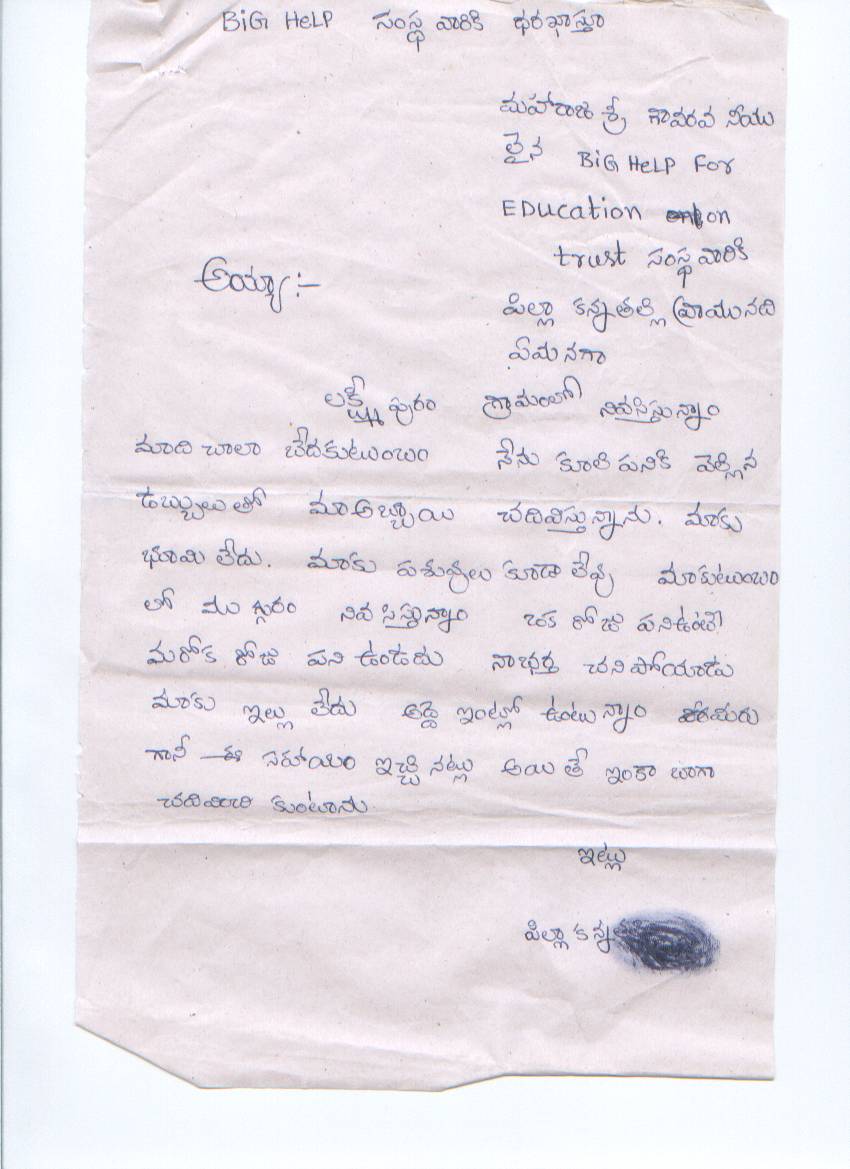 BiG HeLP సంస్థ వారికి ధరఖాస్తూ
మహారాజ శ్రీ గౌవరవ నీయు
లైన BiG HeLP For
EDucation on
trust సంస్థ వారికి
అయ్యా:-
పిల్లా కన్నతల్లి వ్రాయునది
ఏమనగా
లక్ష్మీ పురం గ్రామంలో నివసిస్తున్నాం
మాది చాలా బేదకుటుంబం నేను కూలి పనికి వెల్లిన
డబ్బులుతో మా అబ్బాయి చదివిస్తున్నాను. మాకు
భూమి లేదు. మాకు పశువులు కూడా లేవు మాకుటుంబం
లో ముగ్గురం నివసిస్తున్నాం ఒక రోజు పనిఉంటే
మరోక రోజు పని ఉండదు నాభర్త చనిపోయాడు
మాకు ఇల్లు లేదు అద్దె ఇంట్లో ఉంటున్నాం
గానీ ఈ సహాయం ఇచ్చినట్లు అయితే ఇంకా బాగా
చదివించి కుంటాను.
ఇట్లు
పిల్లా కన్న